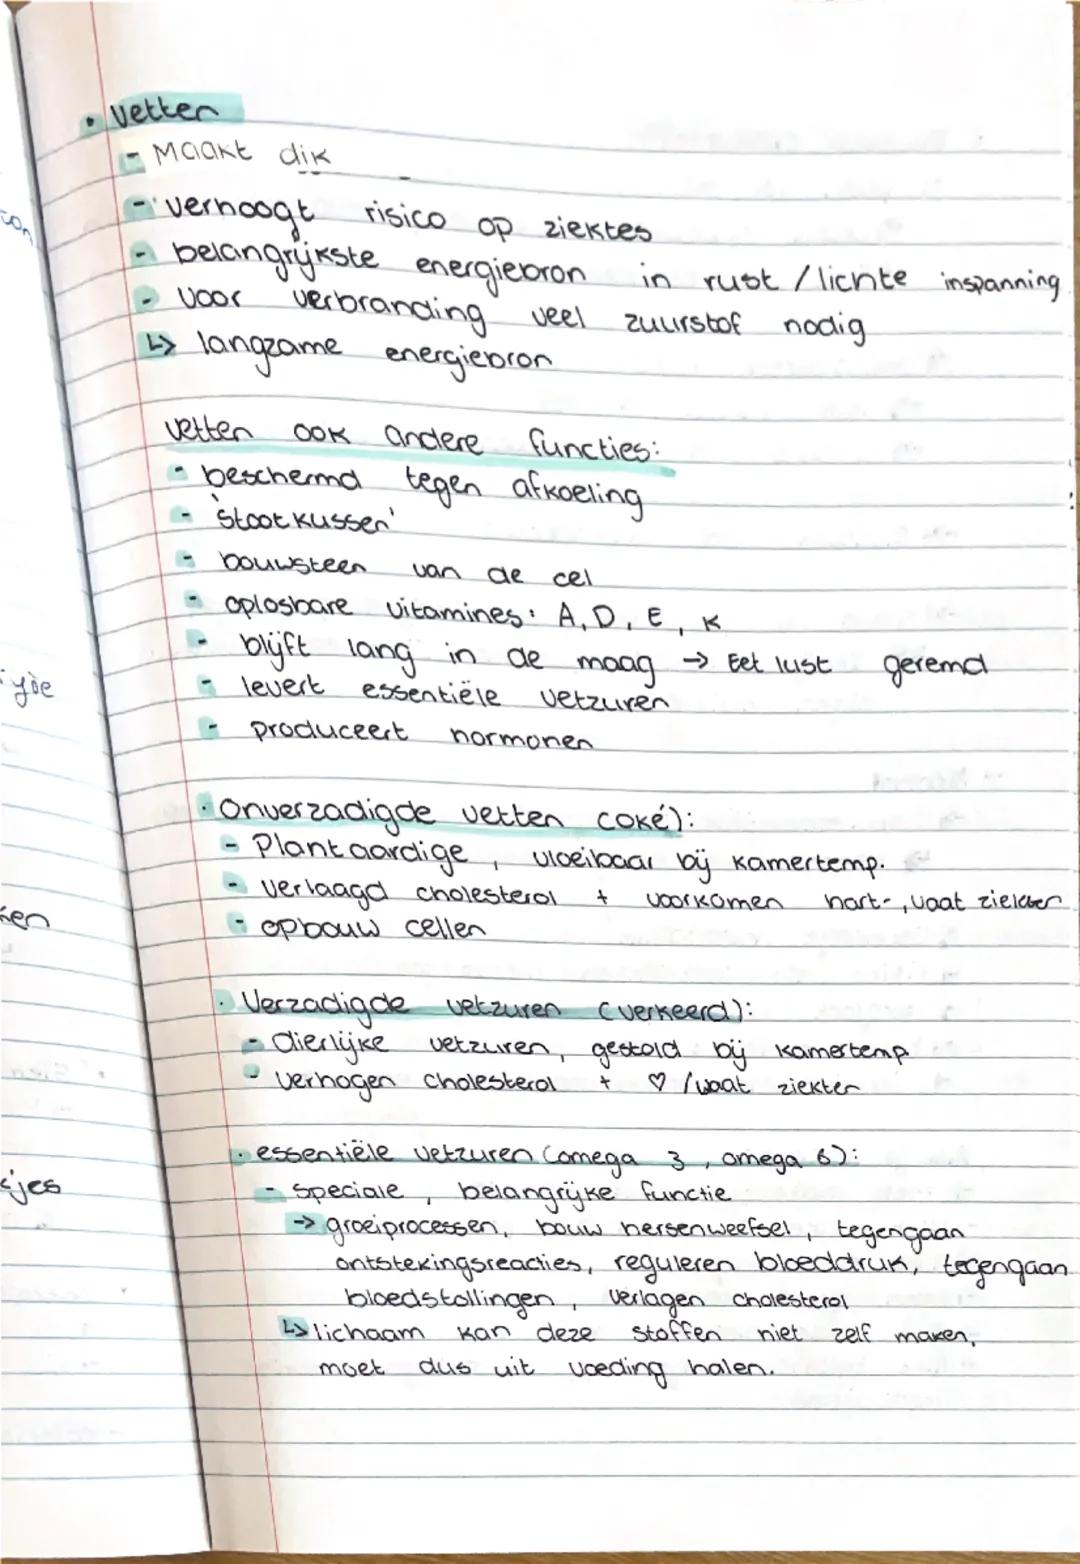 • Vetten
- Maakt dik
- verhoogt risico op ziektes
- belangrijkste energiebron in rust / lichte inspanning
- voor verbranding veel zuurstof nodig
↳ langzame energiebron
vetten ook andere functies:
- beschermd tegen afkoeling
- 'stootkussen'
- bouwsteen van de cel
- oplosbare vitamines: A, D, E, K
- blijft lang in de maag → Eet lust geremd
- levert essentiële vetzuren
- produceert hormonen
• Onverzadigde vetten (oké):
- Plantaardige, vloeibaar bij kamertemp.
- verlaagd cholesterol + voorkomen hart-, vaat ziekten
- opbouw cellen
• Verzadigde vetzuren (verkeerd):
- Dierlijke vetzuren, gestold bij kamertemp
- verhogen cholesterol + ♡ / vaat ziekten
• essentiële vetzuren (omega 3, omega 6):
- speciale, belangrijke functie
→ groeiprocessen, bouw hersenweefsel, tegengaan
ontstekingsreacties, reguleren bloeddruk, tegengaan
bloedstollingen, verlagen cholesterol
↳ lichaam kan deze stoffen niet zelf maken,
moet dus uit voeding halen.